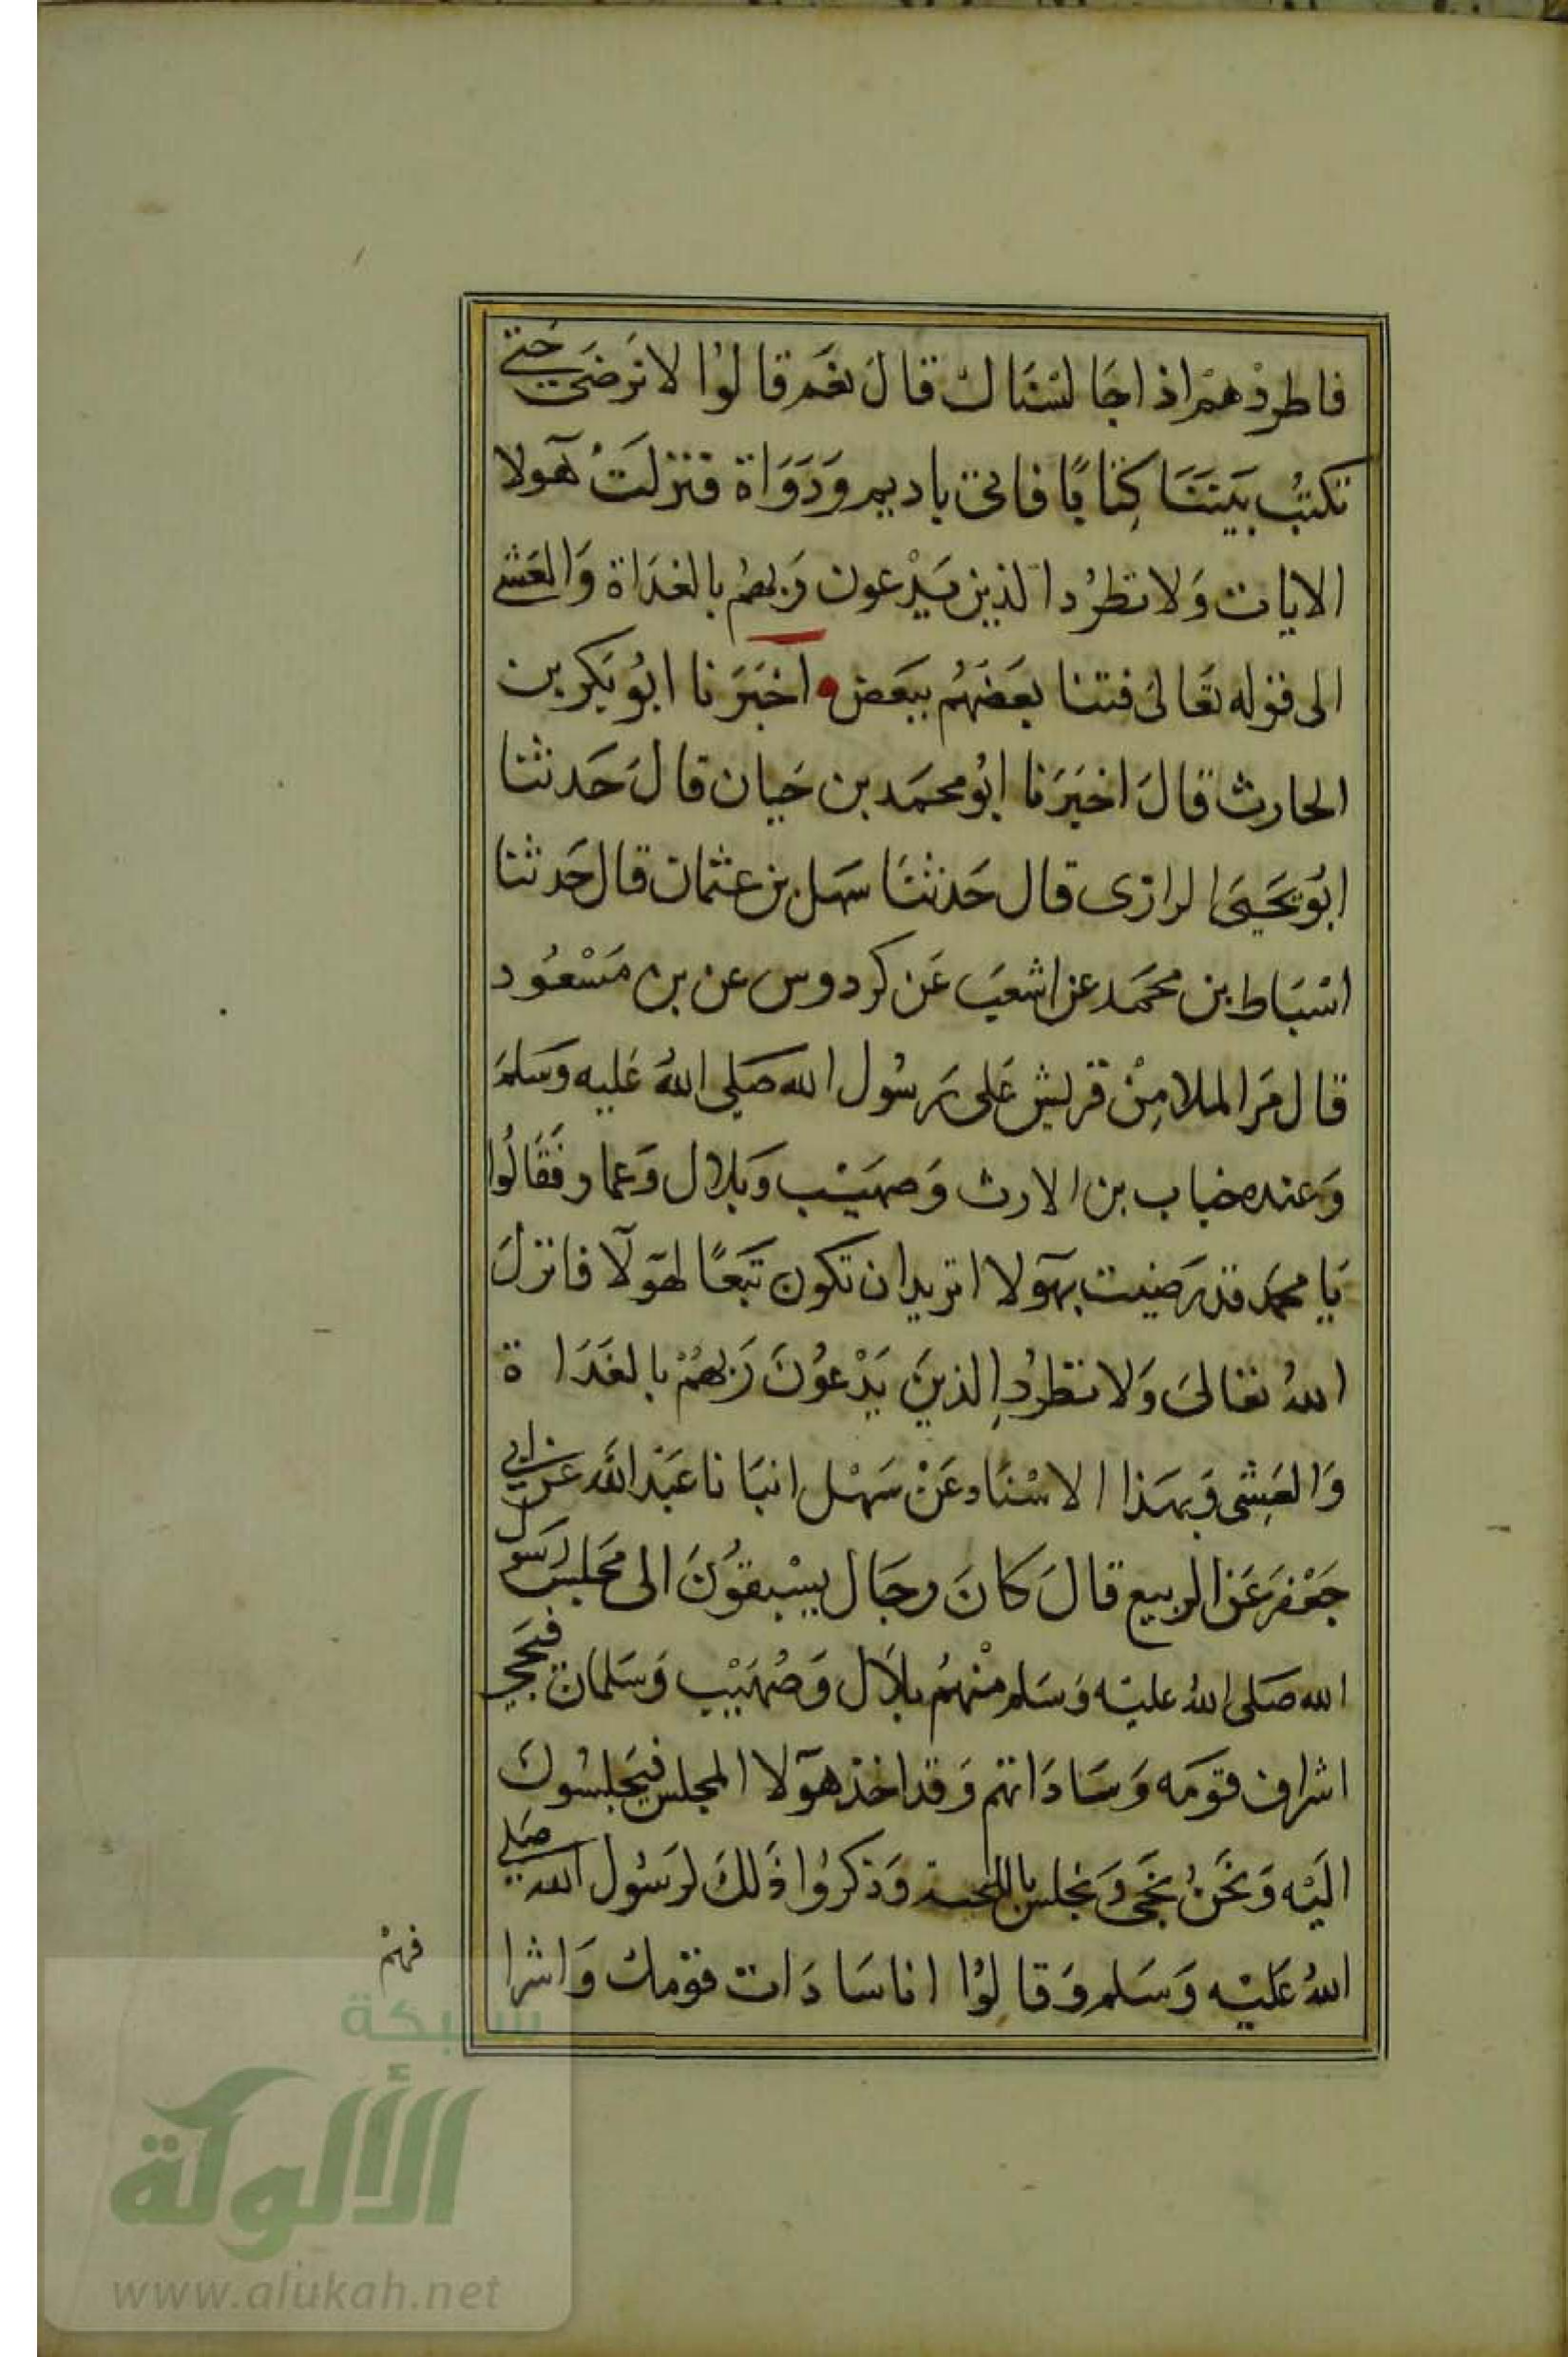 فاطردهم اذا جالسناك قال نعم قالوا لا نرضى حتى
تكتب بيننا كتابًا فاتى باديم ودواة فنزلت هولا
الايات ولا تطرد الذين يدعون ربهم بالغداة والعشى
الى قوله تعالى فتنا بعضهم ببعض اخبرنا ابو بكر بن
الحارث قال اخبرنا ابو محمد بن حيان قال حدثنا
ابو يحيى الرازى قال حدثنا سهل بن عثمان قال حدثنا
اسباط بن محمد عن اشعب عن كردوس عن بن مسعود
قال مر الملا من قريش على رسول الله صلى الله عليه وسلم
وعنده خباب بن الارث وصهيب وبلال وعمار فقالوا
يا محمد قد رضيت بهولا اتريد ان تكون تبعًا لهولآ فانزل
الله تعالى ولا تطرد الذين يدعون ربهم بالغداة
والعشى وبهذا الاسناد عن سهل انبانا عبد الله عن ابى
جعفر عن الربيع قال كان رجال يسبقون الى مجلس رسول
الله صلى الله عليه وسلم منهم بلال وصهيب وسلمان فيجى
اشراف قومه وساداتهم وقد اخذ هولا المجلس فيجلسون
اليه ونحن نجى ونجلس وذكروا ذلك لرسول الله صلى
الله عليه وسلم وقالوا انا سادات قومك واشرا
فهم
شبكة
الألوكة
www.alukah.net